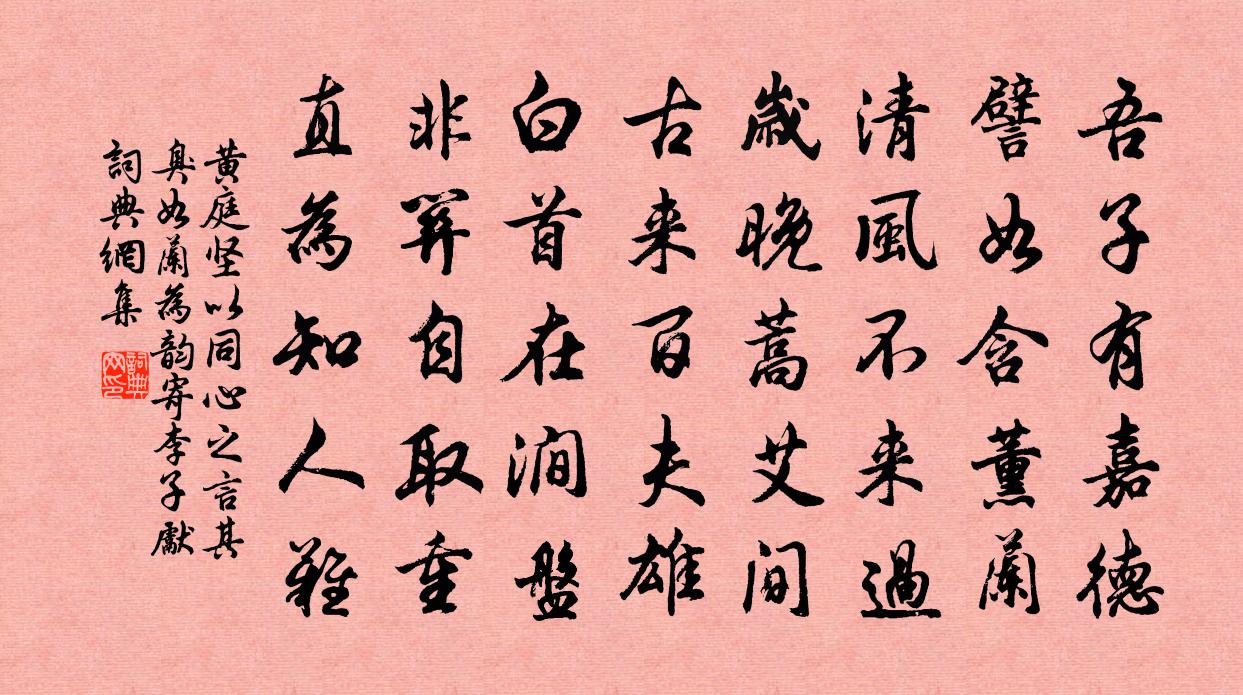 吾子有嘉德
譬如含薰蘭
清風不来過
歲晚蒿艾間
古来百夫雄
白首在澗盤
非羿自取重
直為知人難
黃庭坚以同心之言其
臭如蘭為韵寄李子獻
詞典網集
詞典网印